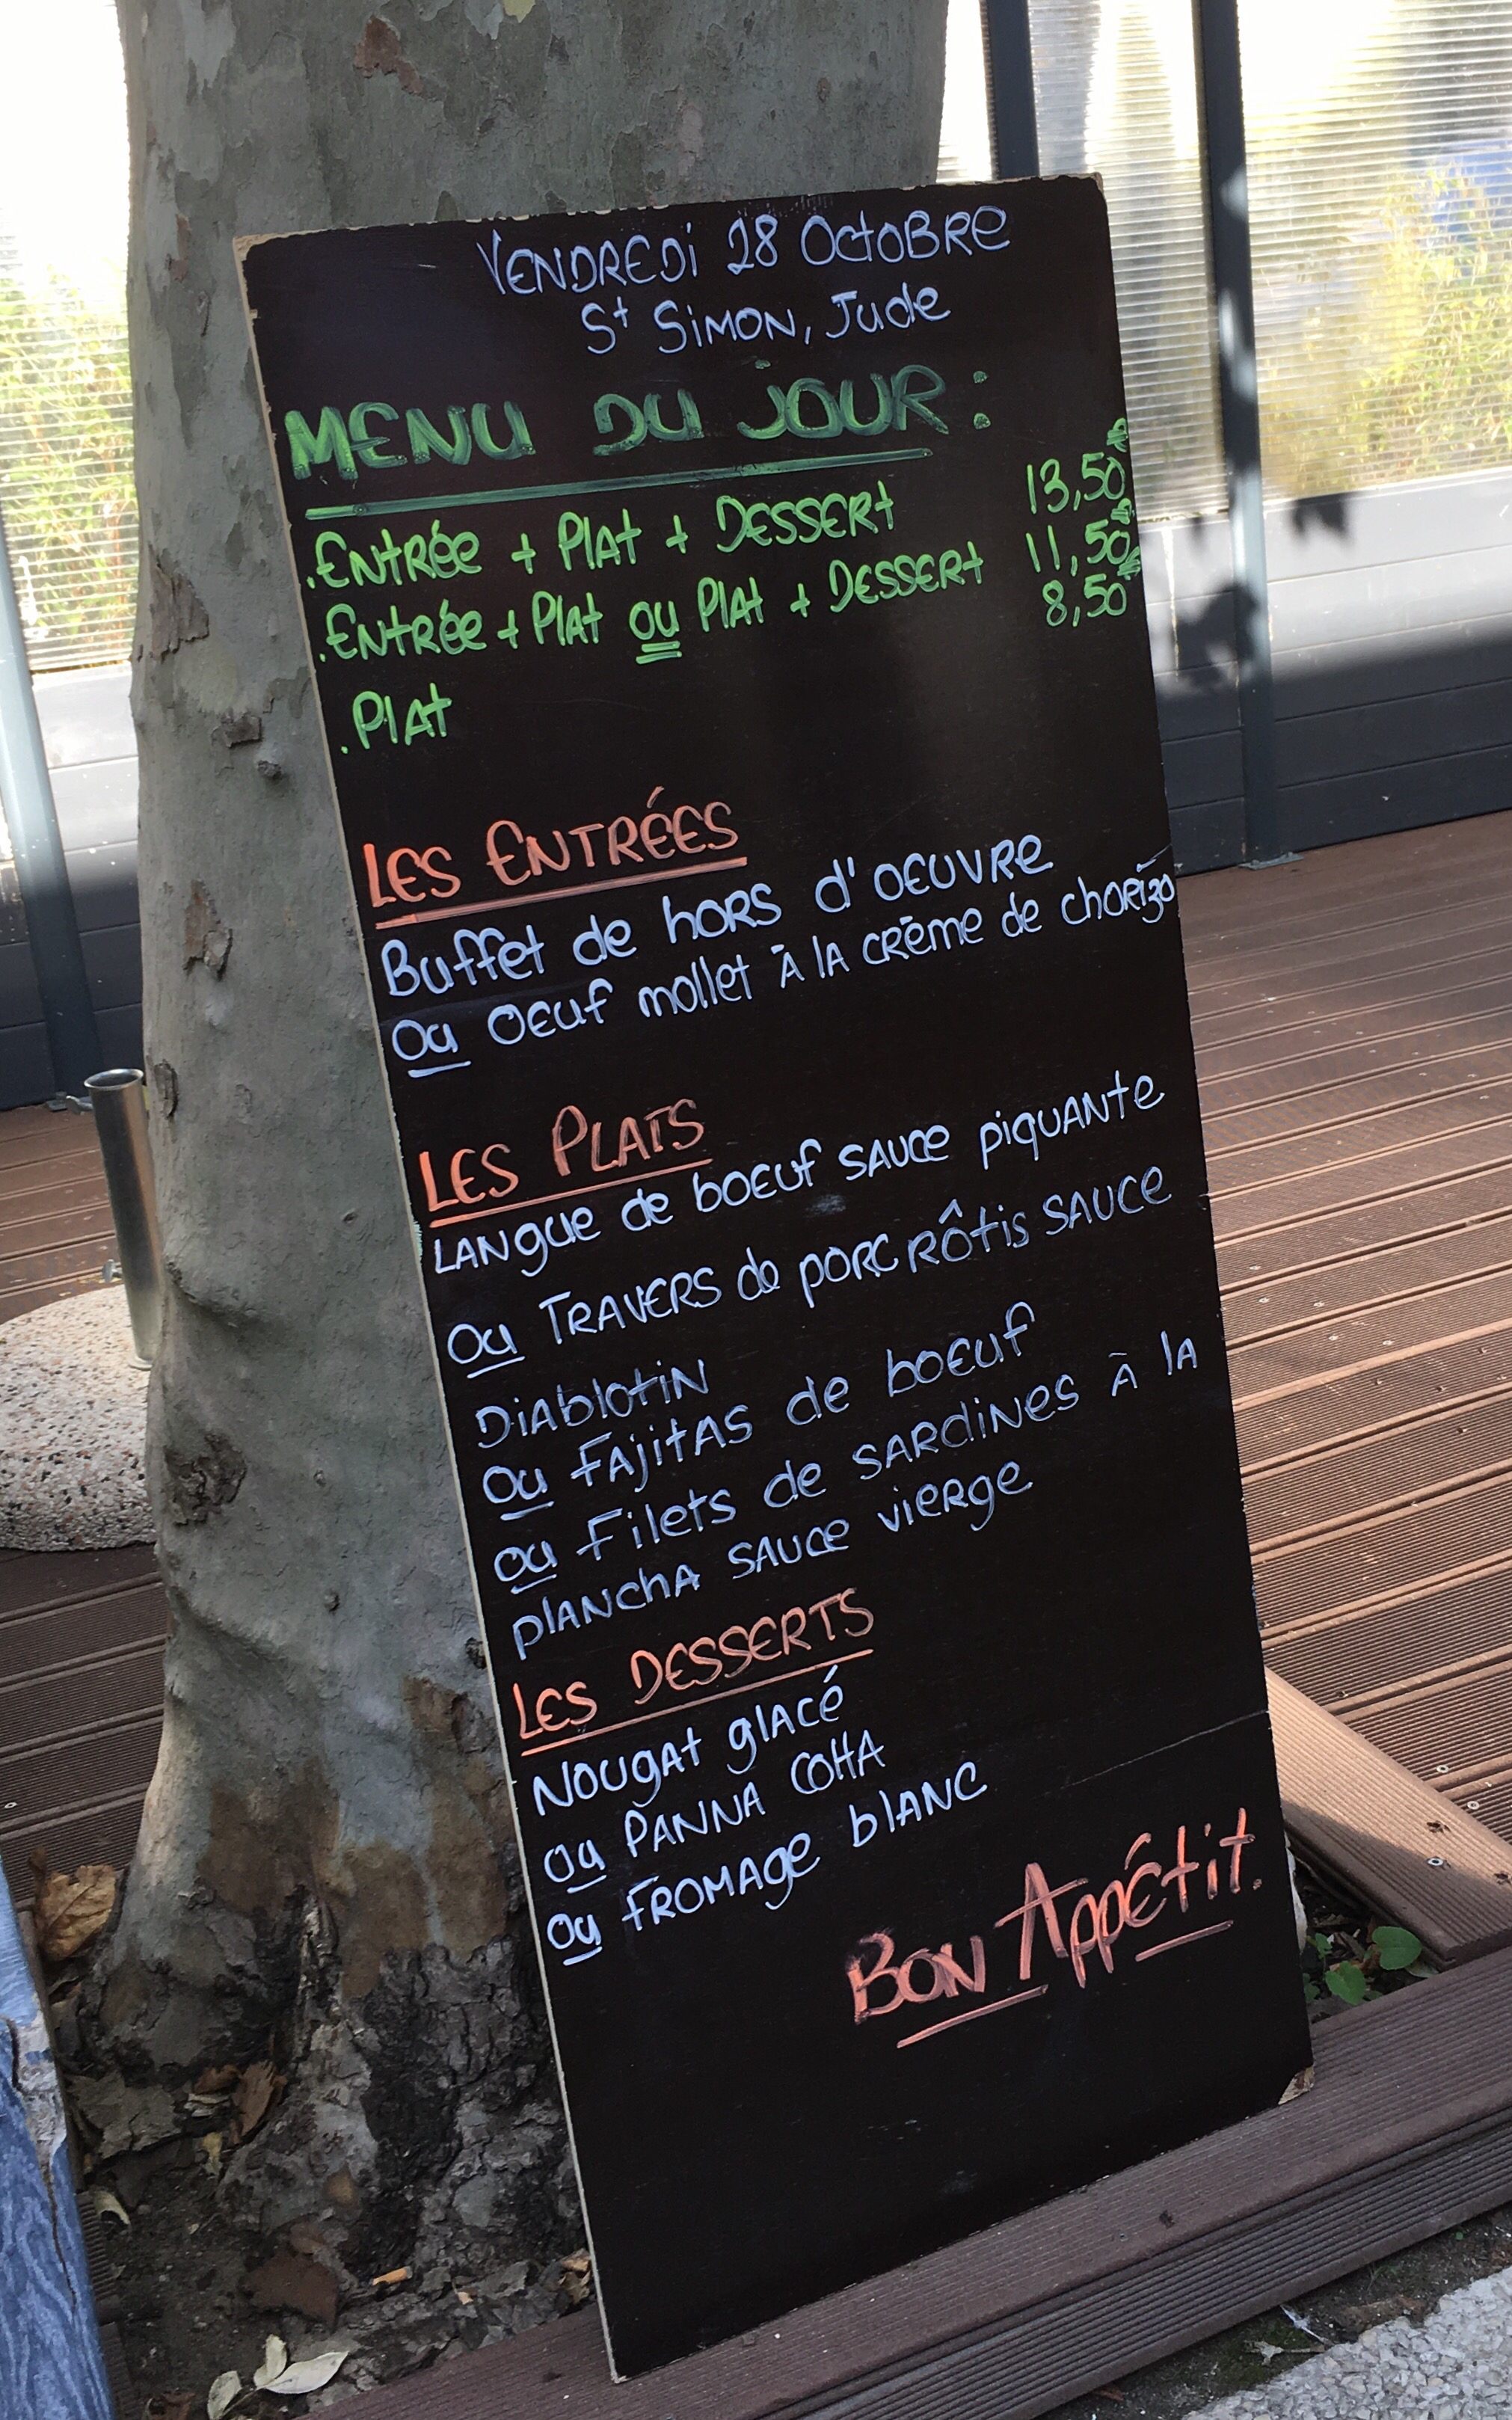 VENDREDI 28 OCTOBRE
St SIMON, Jude
MENU DU JOUR :
.ENTRÉE + PLAT + DESSERT 13,50€
.ENTRÉE + PLAT OU PLAT + DESSERT 11,50€
.PLAT 8,50€
LES ENTRÉES
Buffet de hORS d'OEUVRE
Ou OEuf mollet À lA CRÈme de chORizo
LES PLATS
LANgue de bOEuf SAUCe piquANte
Ou TRAVERS de pORC RÔtis SAUCE
DiAblotiN
Ou fAjitAS de bOEuf
Ou Filets de SARdiNes À lA
plANchA SAUCe vieRge
LES DESSERTS
NOUgAt glAcé
Ou PANNA COttA
Ou FROMAge blANC
BON AppÉtit.